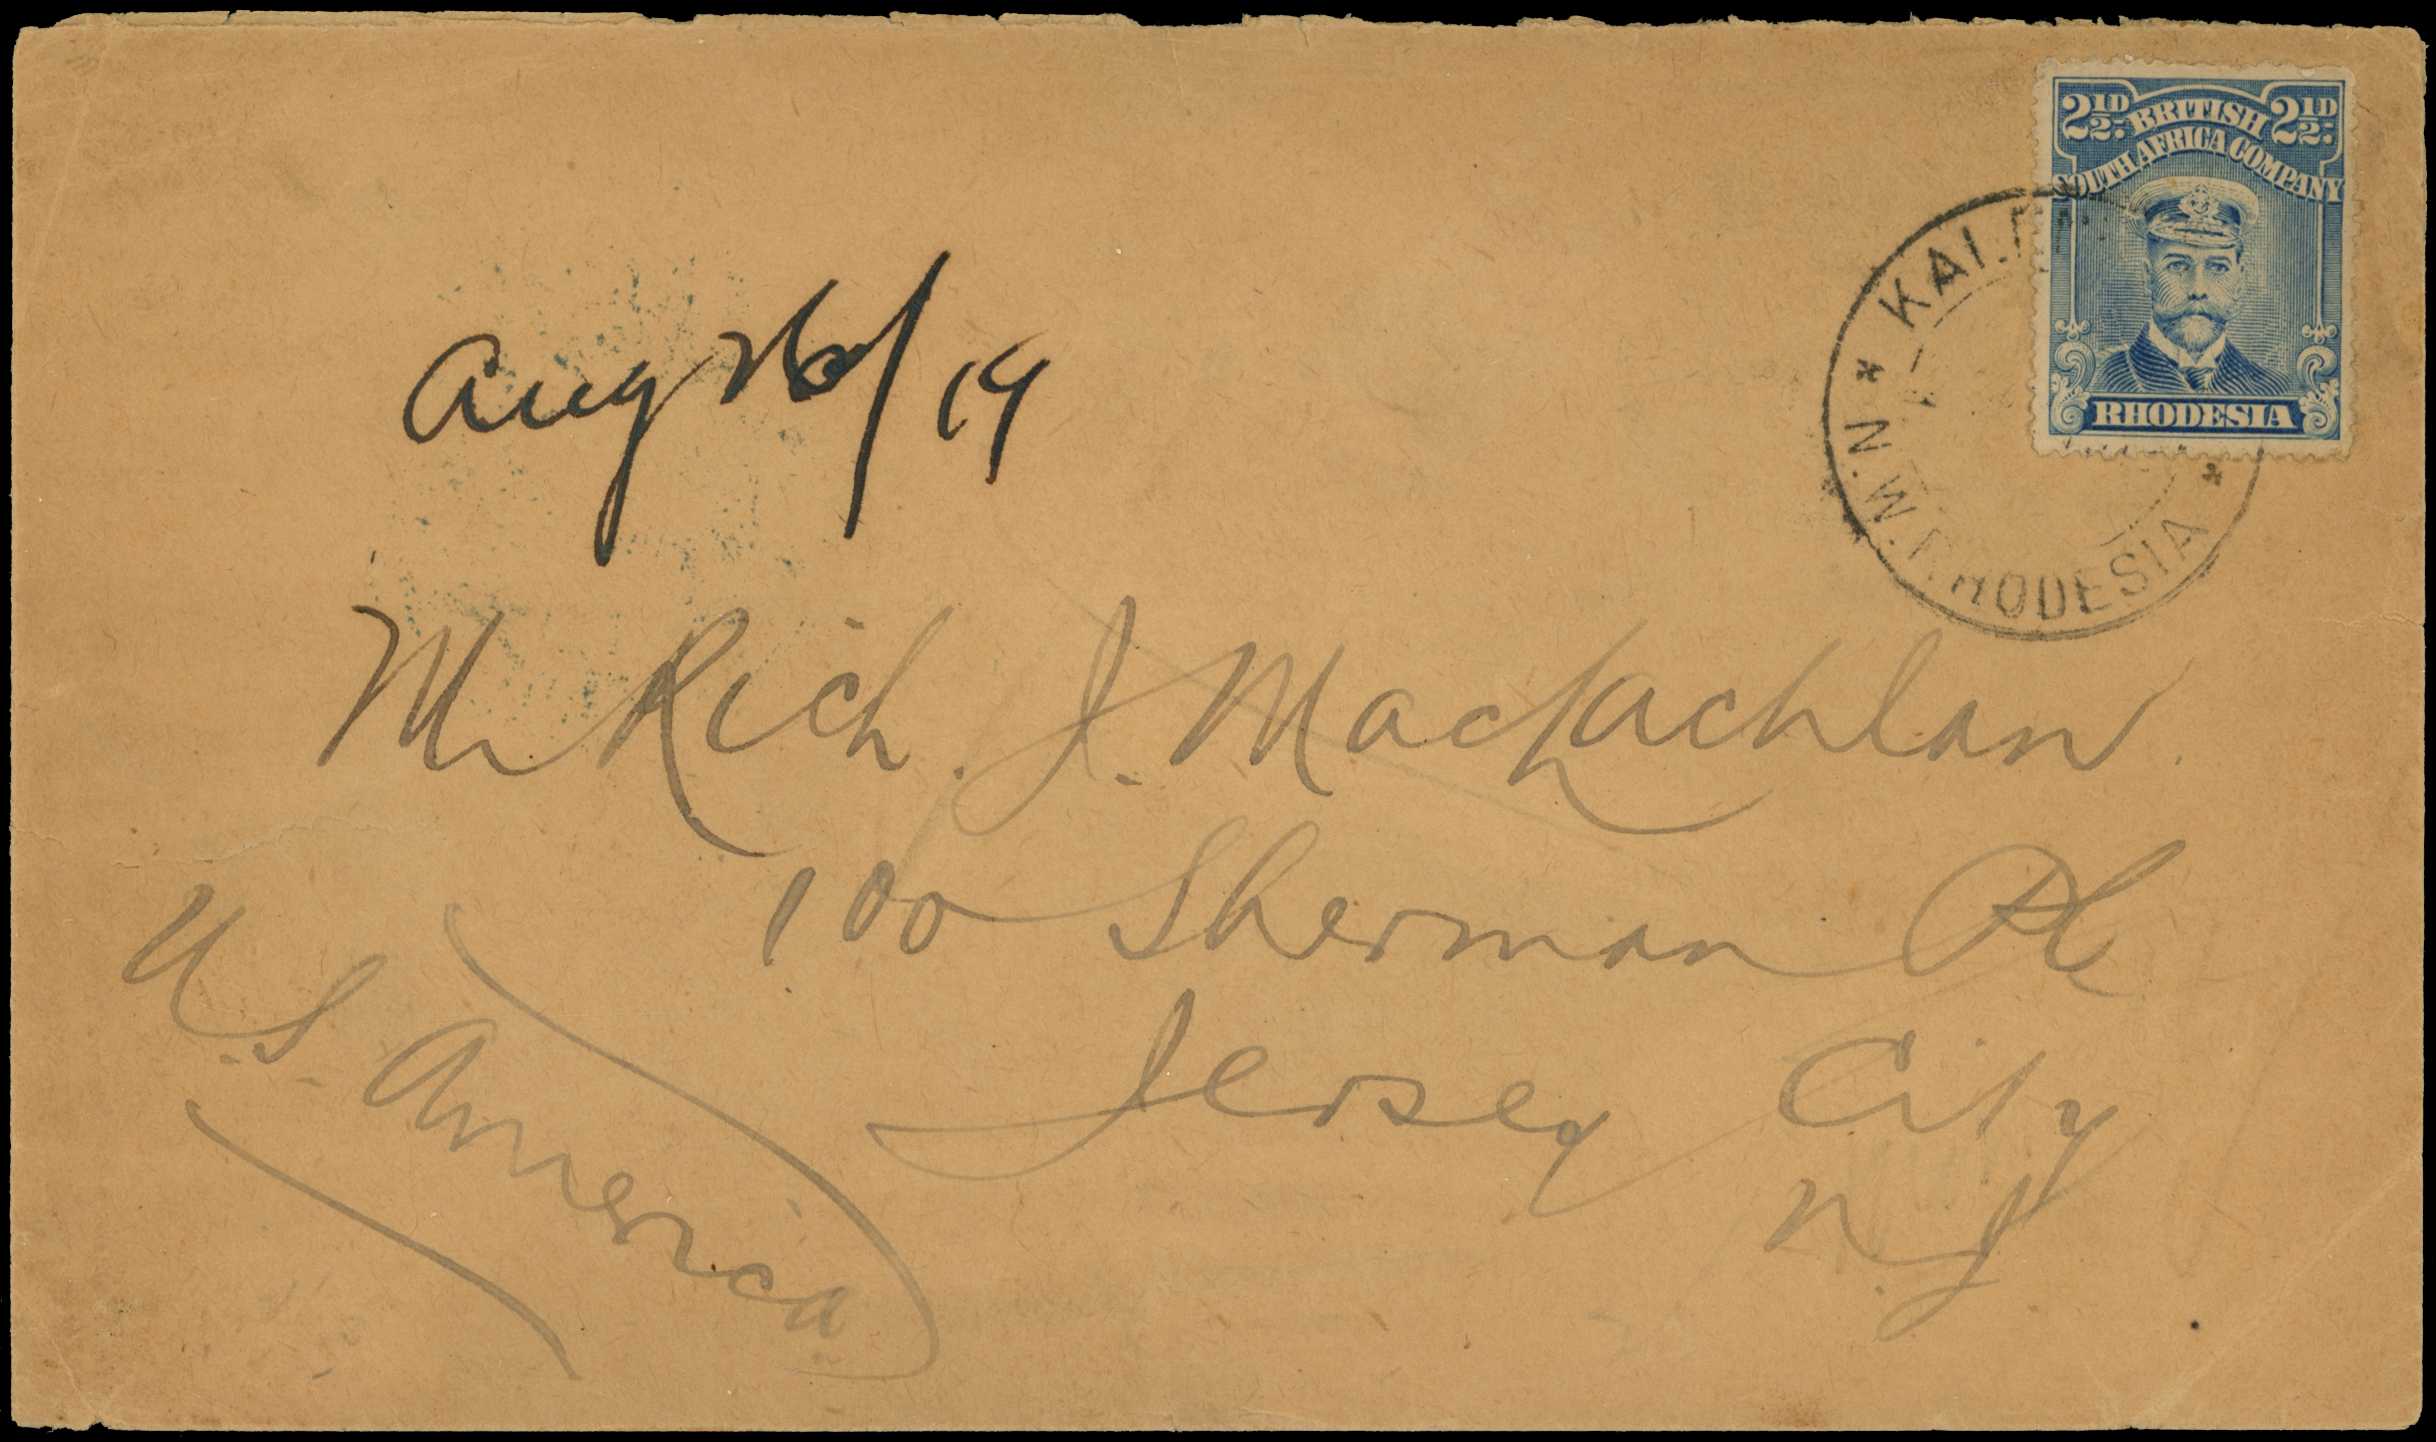 2½D BRITISH 2½D
SOUTH AFRICA COMPANY
RHODESIA
N.W. RHODESIA
Aug 26/19
Mr Rich. J. MacLachlan.
100 Sherman Pl
Jersey City
N.J
U.S. America